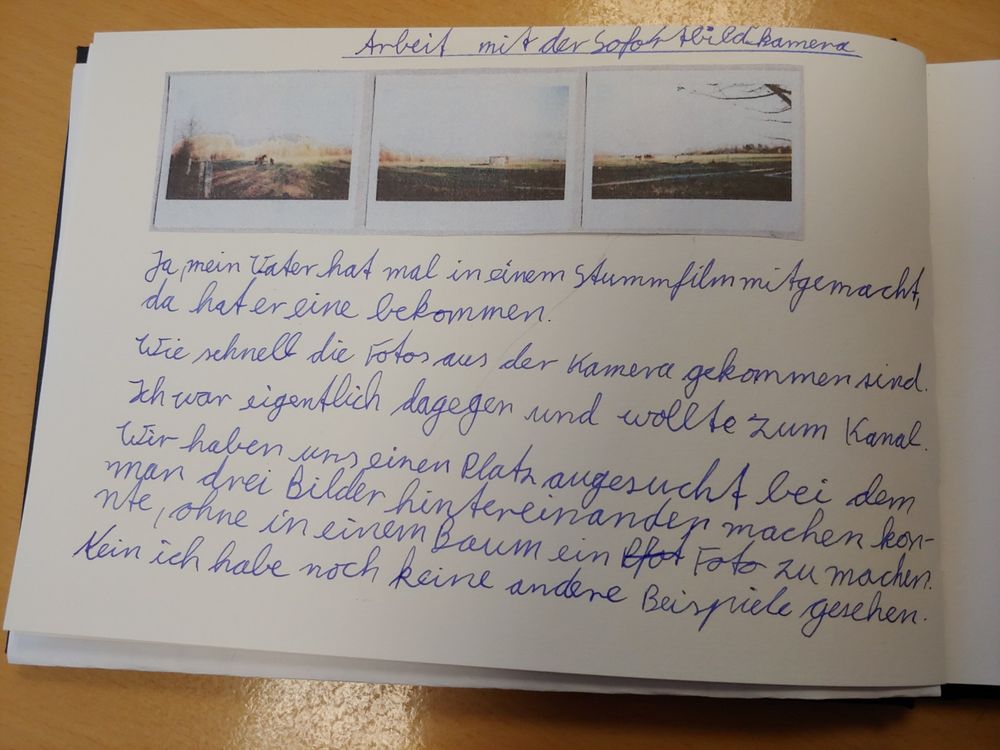 Arbeit mit der Sofortbildkamera
Ja, mein Vater hat mal in einem Stummfilm mitgemacht,
da hat er eine bekommen.
Wie schnell die Fotos aus der Kamera gekommen sind.
Ich war eigentlich dagegen und wollte zum Kanal.
Wir haben uns einen Platz augesucht bei dem
man drei Bilder hintereinander machen kon-
nte, ohne in einem Baum ein Foto zu machen.
Nein ich habe noch keine andere Beispiele gesehen.